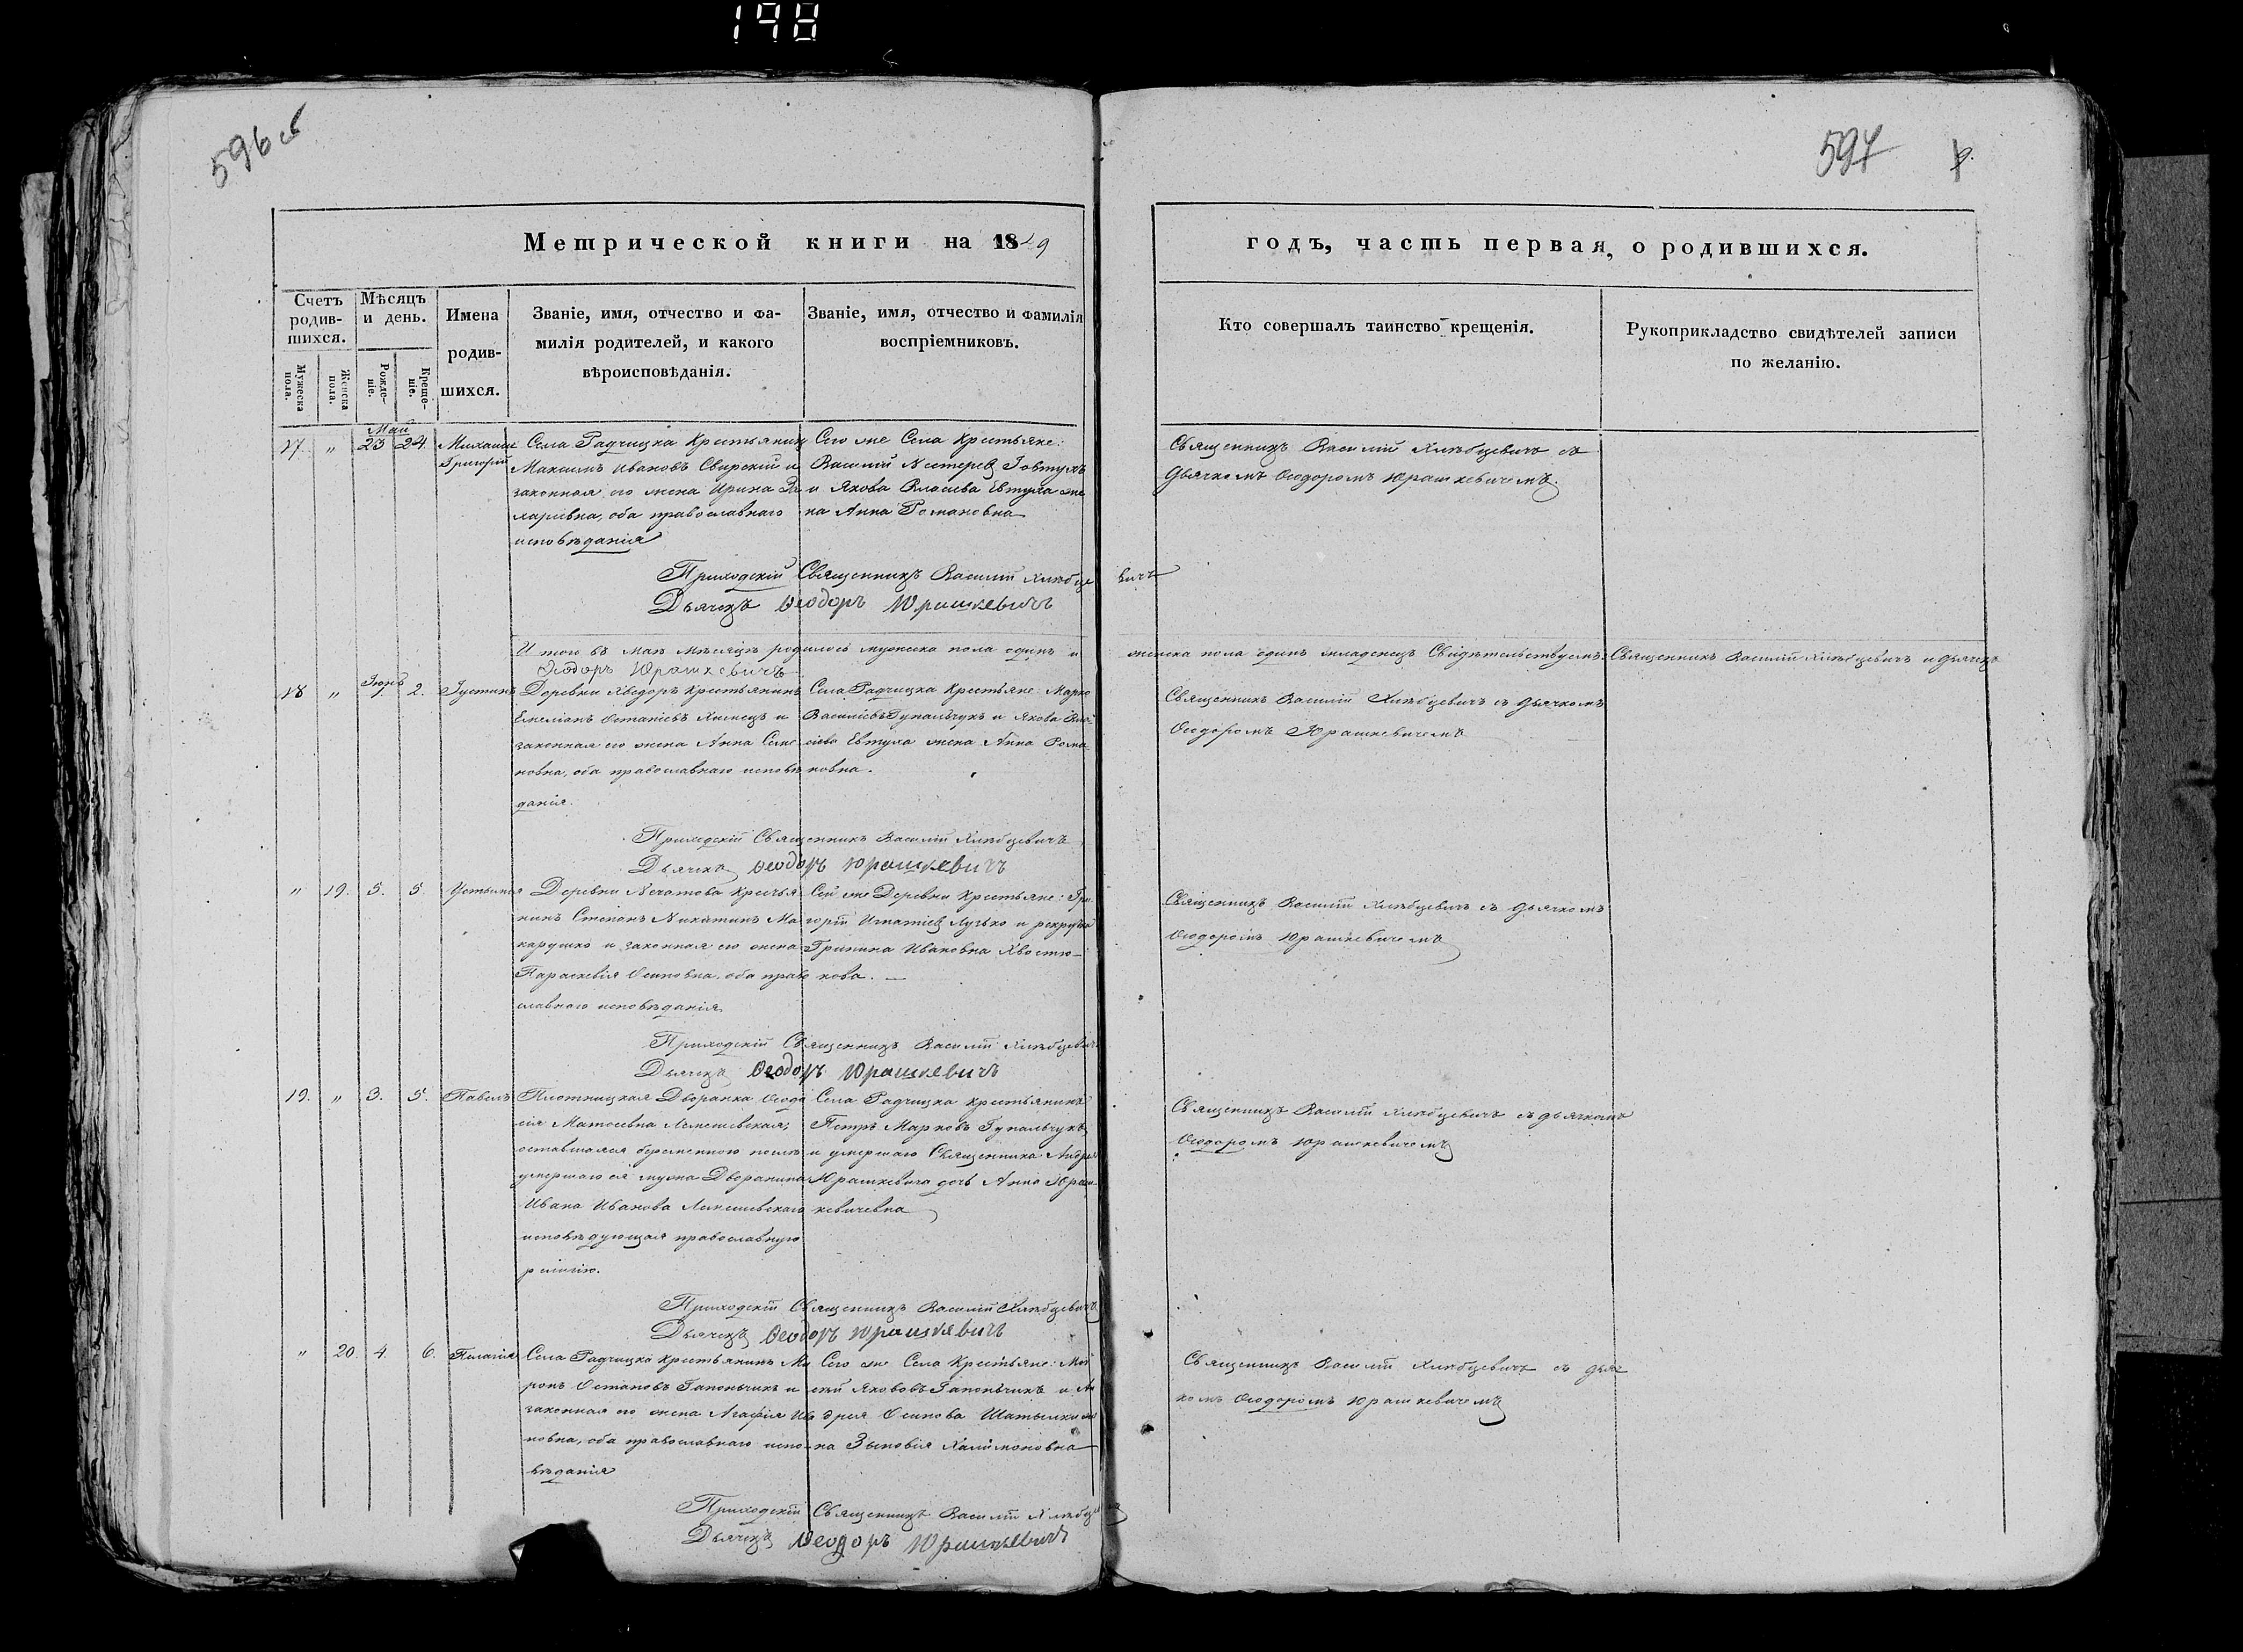 198
596 об
597
Метрической книги на 1849
годъ, часть первая, о родившихся.
Счетъ родив-шихся.
Мѣсяцъ и день.
Имена родив-шихся.
Званіе, имя, отчество и фа-
милія родителей, и какого
вѣроисповѣданія.
Званіе, имя, отчество и фамилія
воспріемниковъ.
Кто совершалъ таинство крещенія.
Рукоприкладство свидѣтелей записи
по желанію.
Мужеска пола.
Женска пола.
Рожде-ніе.
Креще-ніе.
Май
17. „ 23 24
Григорій
Села Радчицка Крестьянинъ
Максимъ Ивановъ Свирскій и
законная его жена Ирина За
харіевна, оба православнаго
исповѣданія
Сего же Села Крестьяне:
Василій
и Якова Власіева Евтуха же
на Анна Романовна
Священникъ Василій Хлѣбцевичъ съ
Дьячкомъ Ѳеодоромъ Юрашкевичемъ.
Приходскій Священникъ Василій Хлѣбцевичъ
Дьячекъ Ѳеодоръ Юрашкевичъ
Итого въ маѣ мѣсяцѣ родилось мужеска пола одинъ и
женска пола одинъ младенецъ Свидѣтельствуемъ: Священникъ Василій Хлѣбцевичъ и Дьячекъ
Ѳеодоръ Юрашкевичъ
Іюнь
18 „ 1. 2. Іустинъ
Деревни Хведоръ Крестьянинъ
Емеліанъ Остапіевъ и
законная его жена Анна Семе
новна, оба православнаго исповѣ
данія.
Села Радчицка Крестьяне: Марко
Василіевъ Гупальчукъ и Якова Вла
сіева Евтуха жена Анна Рома
новна.
Священникъ Василій Хлѣбцевичъ съ Дьячкомъ
Ѳеодоромъ Юрашкевичемъ
Приходскій Священникъ Василій Хлѣбцевичъ
Дьячекъ Ѳеодоръ Юрашкевичъ
„ 19. 5. 5.
Деревни Нечатова Крестья
нинъ Степанъ Никитинъ Ма
карушко и законная его жена
Параскевія Осиповна, оба право
славнаго исповѣданія
Сей же Деревни Крестьяне: Гри
горій Игнатіевъ Лузько и
Ивановна Хвостю-
кова.
Священникъ Василій Хлѣбцевичъ съ Дьячкомъ
Ѳеодоромъ Юрашкевичемъ
Приходскій Священникъ Василій Хлѣбцевичъ
Дьячекъ Ѳеодоръ Юрашкевичъ
19. „ 3. 5. Павелъ
Плотницкая Дворянка Ѳеодо
сія Матѳеевна Лемешевская,
оставшаяся беременною послѣ
умершаго ея мужа Дворянина
Ивана Иванова Лемешевскаго
исповѣдующая православную
религію.
Села Радчицка крестьянинъ
Петръ Марковъ Гупальчукъ,
и умершаго Священника Андрея
Юрашкевича дочь Анна Юраш
кевичевна
Священникъ Василій Хлѣбцевичъ съ дьячкомъ
Ѳеодоромъ Юрашкевичемъ
Приходскій Священникъ Василій Хлѣбцевичъ
Дьячекъ Ѳеодоръ Юрашкевичъ
„ 20. 4. 6. Пелагія
Села Радчицка крестьянинъ Ми
ронъ Остаповъ Гапончикъ и
законная его жена Агафія Ива
новна, оба православнаго испо-
вѣданія
Сего же Села Крестьяне: Мой
сей Яковъ Гапончикъ и Ан
дрея Осипова же
на Зыновія Халимоновна
Священникъ Василій Хлѣбцевичъ съ Дьяч
комъ Ѳеодоромъ Юрашкевичемъ
Приходскій Священникъ Василій
Дьячекъ Ѳеодоръ Юрашкевичъ